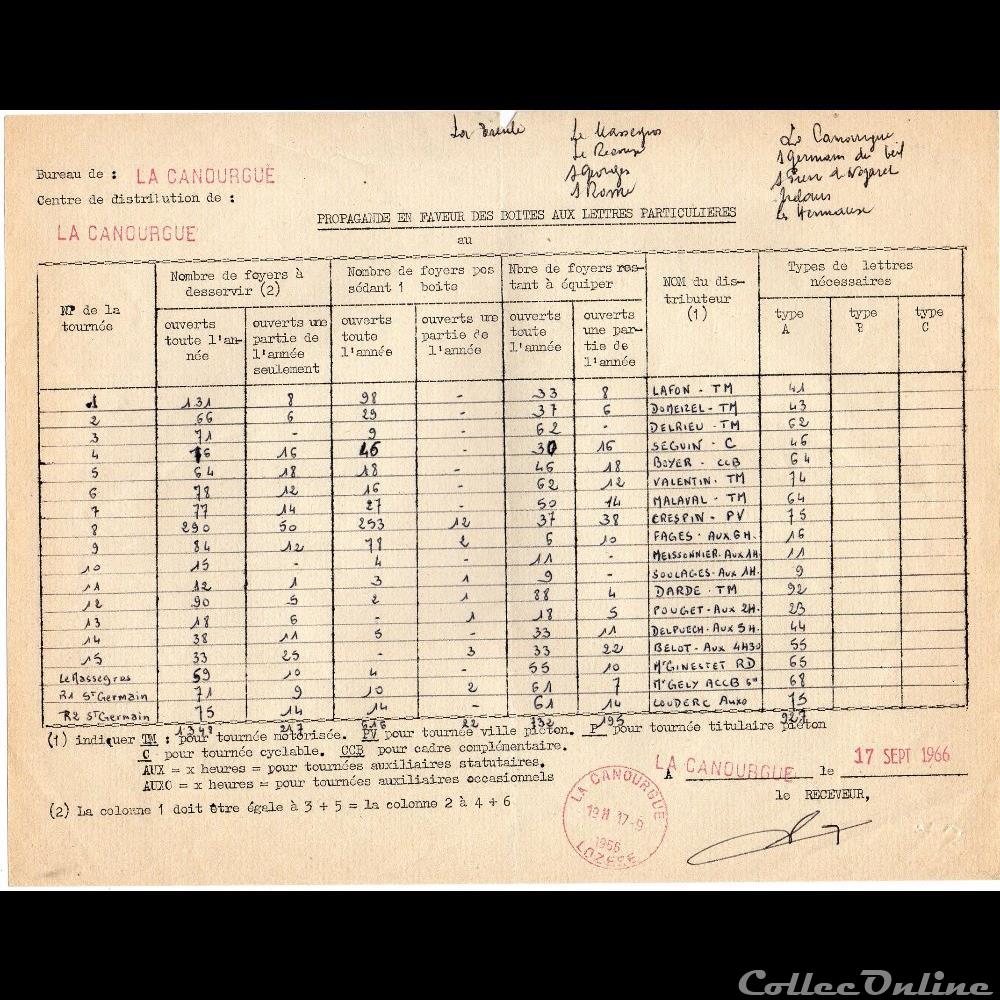 Le Massegros Le Canourgue
Le Recoux S Germain du teil
S Georges S Pierre d Nogaret
S Rome
les Hermaux
Bureau de : LA CANOURGUE
Centre de distribution de :
LA CANOURGUE
PROPAGANDE EN FAVEUR DES BOITES AUX LETTRES PARTICULIERES
au
N° de la tournée | Nombre de foyers à desservir (2) | Nombre de foyers possédant 1 boite | Nbre de foyers restant à équiper | NOM du distributeur (1) | Types de lettres nécessaires
ouverts toute l'année | ouverts une partie de l'année seulement | ouverts toute l'année | ouverts une partie de l'année | ouverts toute l'année | ouverts une partie de l'année | type A | type B | type C
1 131 8 98 - 33 8 LAFON - TM 41
2 66 6 29 - 37 6 DOMEIZEL - TM 43
3 71 - 9 - 62 - DELRIEU - TM 62
4 76 16 46 - 30 16 SEGUIN - C 46
5 64 18 18 - 46 18 BOYER - CCB 64
6 78 12 16 - 62 12 VALENTIN - TM 74
7 77 14 27 - 50 14 MALAVAL - TM 64
8 290 50 253 12 37 38 CRESPIN - PV 75
9 84 12 78 2 6 10 FAGES - AUX 6H. 16
10 15 - 4 - 11 - MEISSONNIER. AUX 1H 11
11 12 1 3 1 9 - SOULAGES - AUX 1H. 9
12 90 5 2 1 88 4 DARDE - TM 92
13 18 6 - 1 18 5 POUGET - AUX 2H. 23
14 38 11 5 - 33 11 DELPUECH - AUX 5H. 44
15 33 25 - 3 33 22 BELOT - AUX 4H30 55
Le Massegros 59 10 4 - 55 10 Mr GINESTET RD 65
R1 St Germain 71 9 10 2 61 7 Mr GELY ACCB 68
R2 St Germain 75 14 14 - 61 14 LOUDERC AUXO 75
1348 217 616 22 732 195 927
(1) indiquer TM : pour tournée motorisée. PV pour tournée ville piéton. P pour tournée titulaire piéton
C pour tournée cyclable. CCB pour cadre complémentaire.
AUX = x heures = pour tournées auxiliaires statutaires.
AUXO = x heures = pour tournées auxiliaires occasionnels
A LA CANOURGUE le 17 SEPT 1966
le RECEVEUR,
(2) La colonne 1 doit être égale à 3 + 5 = la colonne 2 à 4 + 6
LA CANOURGUE
19H 17-9
1966
LOZERE
CollecOnline